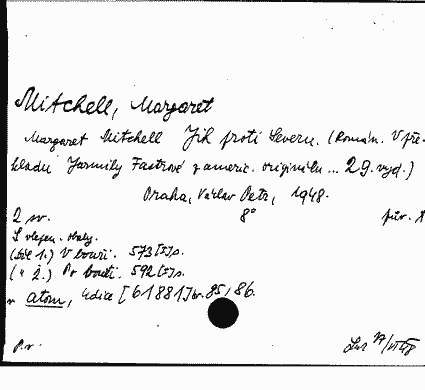 Mitchell, Margaret
Margaret Mitchell Jih proti Severu. (Román. V pře-
kladu Jarmily Fastrové z americ. originálu ... 29. vyd.)
Praha, Václav Petr, 1948.
2 sv. 8° pův.
S vlepen. obálk.
(Díl 1.) V bouři. 573 [I] s.
(" 2.) Po bouři. 592 [I] s.
atom, Edice [61881] sv. 85, 86.